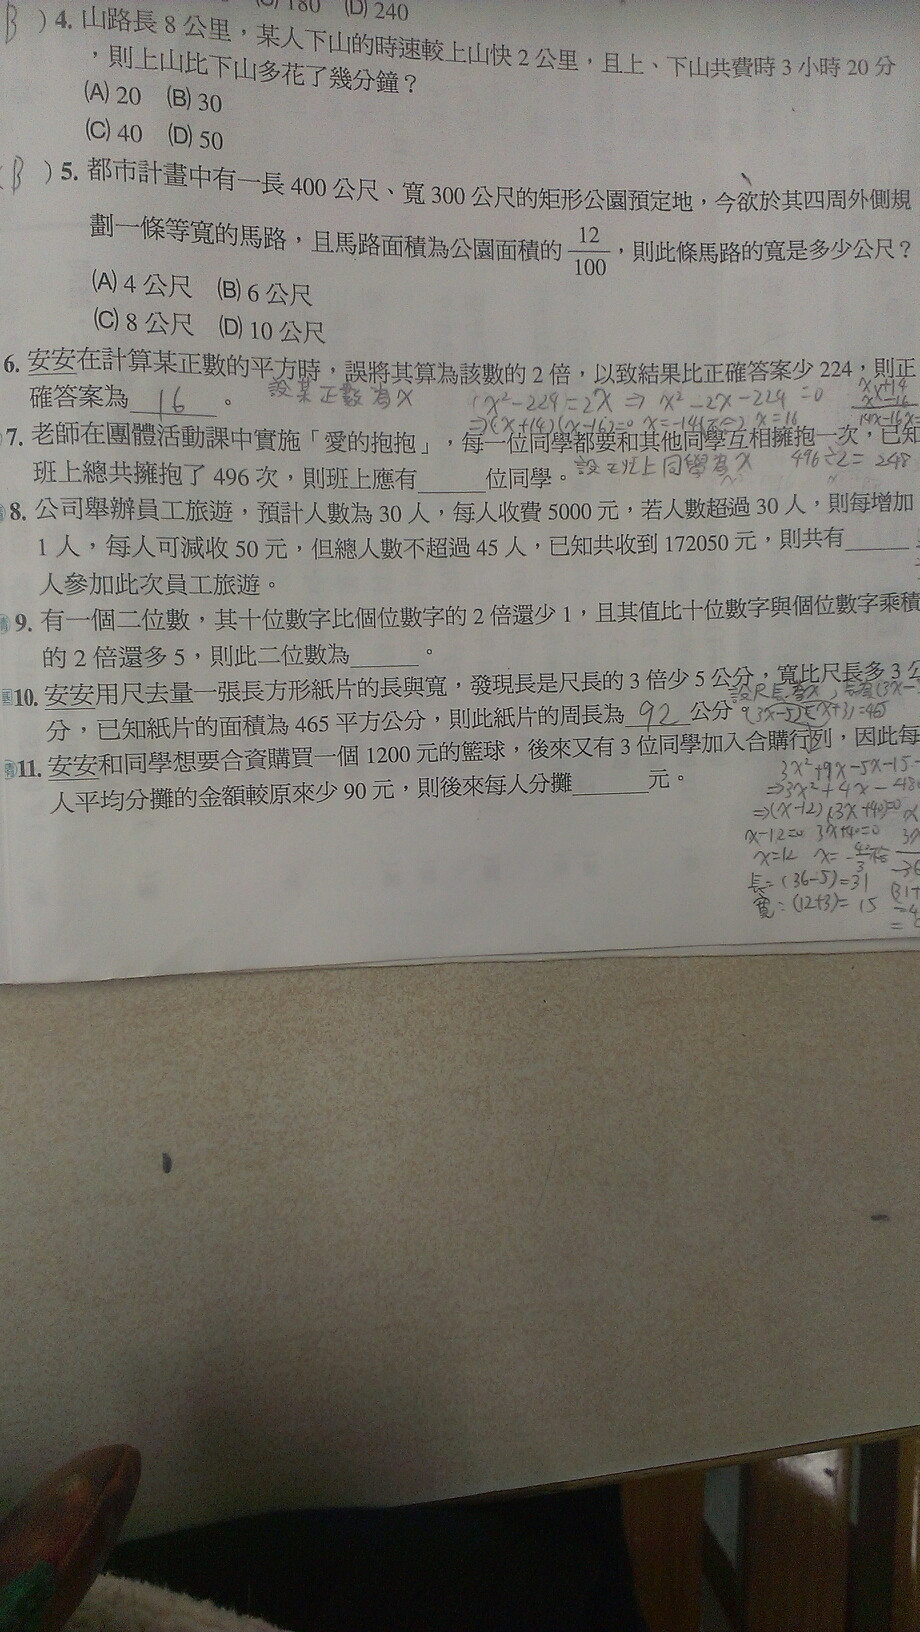 180 (D) 240
B ) 4. 山路長 8 公里，某人下山的時速較上山快 2 公里，且上、下山共費時 3 小時 20 分
，則上山比下山多花了幾分鐘？
(A) 20 (B) 30
(C) 40 (D) 50
B ) 5. 都市計畫中有一長 400 公尺、寬 300 公尺的矩形公園預定地，今欲於其四周外側規
劃一條等寬的馬路，且馬路面積為公園面積的 12/100，則此條馬路的寬是多少公尺？
(A) 4 公尺 (B) 6 公尺
(C) 8 公尺 (D) 10 公尺
6. 安安在計算某正數的平方時，誤將其算為該數的 2 倍，以致結果比正確答案少 224，則正
確答案為 16 。 設某正數為x x²-224=2x ⇒ x²-2x-224=0
⇒(x+14)(x-16)=0 x=-14 x=16
x +14
x -16
14x-16x=
7. 老師在團體活動課中實施「愛的抱抱」，每一位同學都要和其他同學互相擁抱一次，已知
班上總共擁抱了 496 次，則班上應有______位同學。 設班上同學為x 496÷2=248
8. 公司舉辦員工旅遊，預計人數為 30 人，每人收費 5000 元，若人數超過 30 人，則每增加
1 人，每人可減收 50 元，但總人數不超過 45 人，已知共收到 172050 元，則共有______
人參加此次員工旅遊。
9. 有一個二位數，其十位數字比個位數字的 2 倍還少 1，且其值比十位數字與個位數字乘積
的 2 倍還多 5，則此二位數為______。
10. 安安用尺去量一張長方形紙片的長與寬，發現長是尺長的 3 倍少 5 公分，寬比尺長多 3 公
分，已知紙片的面積為 465 平方公分，則此紙片的周長為 92 公分。
設尺長為x
(3x-5)(x+3)=465
11. 安安和同學想要合資購買一個 1200 元的籃球，後來又有 3 位同學加入合購行列，因此每
人平均分攤的金額較原來少 90 元，則後來每人分攤______元。
3x²+9x-5x-15-
⇒3x²+4x-480
⇒(x-12)(3x+40)=0
x-12=0 3x+40=0
x=12 x=-40/3
長=(36-5)=31
寬=(12+3)=15